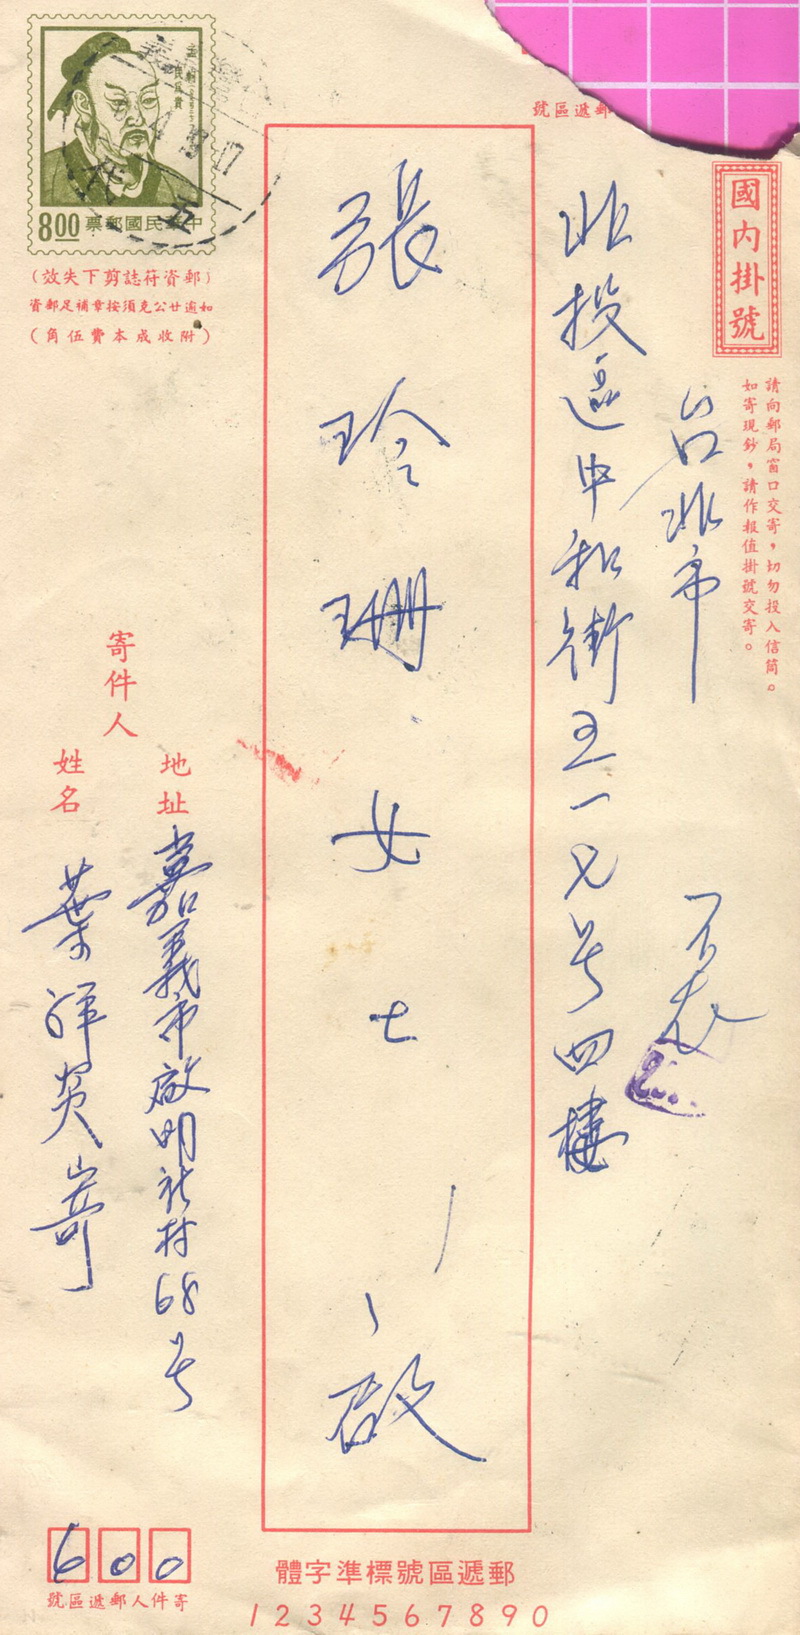 郵遞區號
國內掛號
請向郵局窗口交寄，切勿投入信筒。
如寄現鈔，請作報值掛號交寄。
台北市
北投區中和街五一九号四樓
張玲珊女士
啟
中華民國郵票
8.00
(郵資符誌剪下失效)
如逾廿公克須按章補足郵資
(附收成本費伍角)
寄件人
地址
嘉義市啟明社村68号
姓名
葉
600
寄件人郵遞區號
郵遞區號標準字體
1234567890